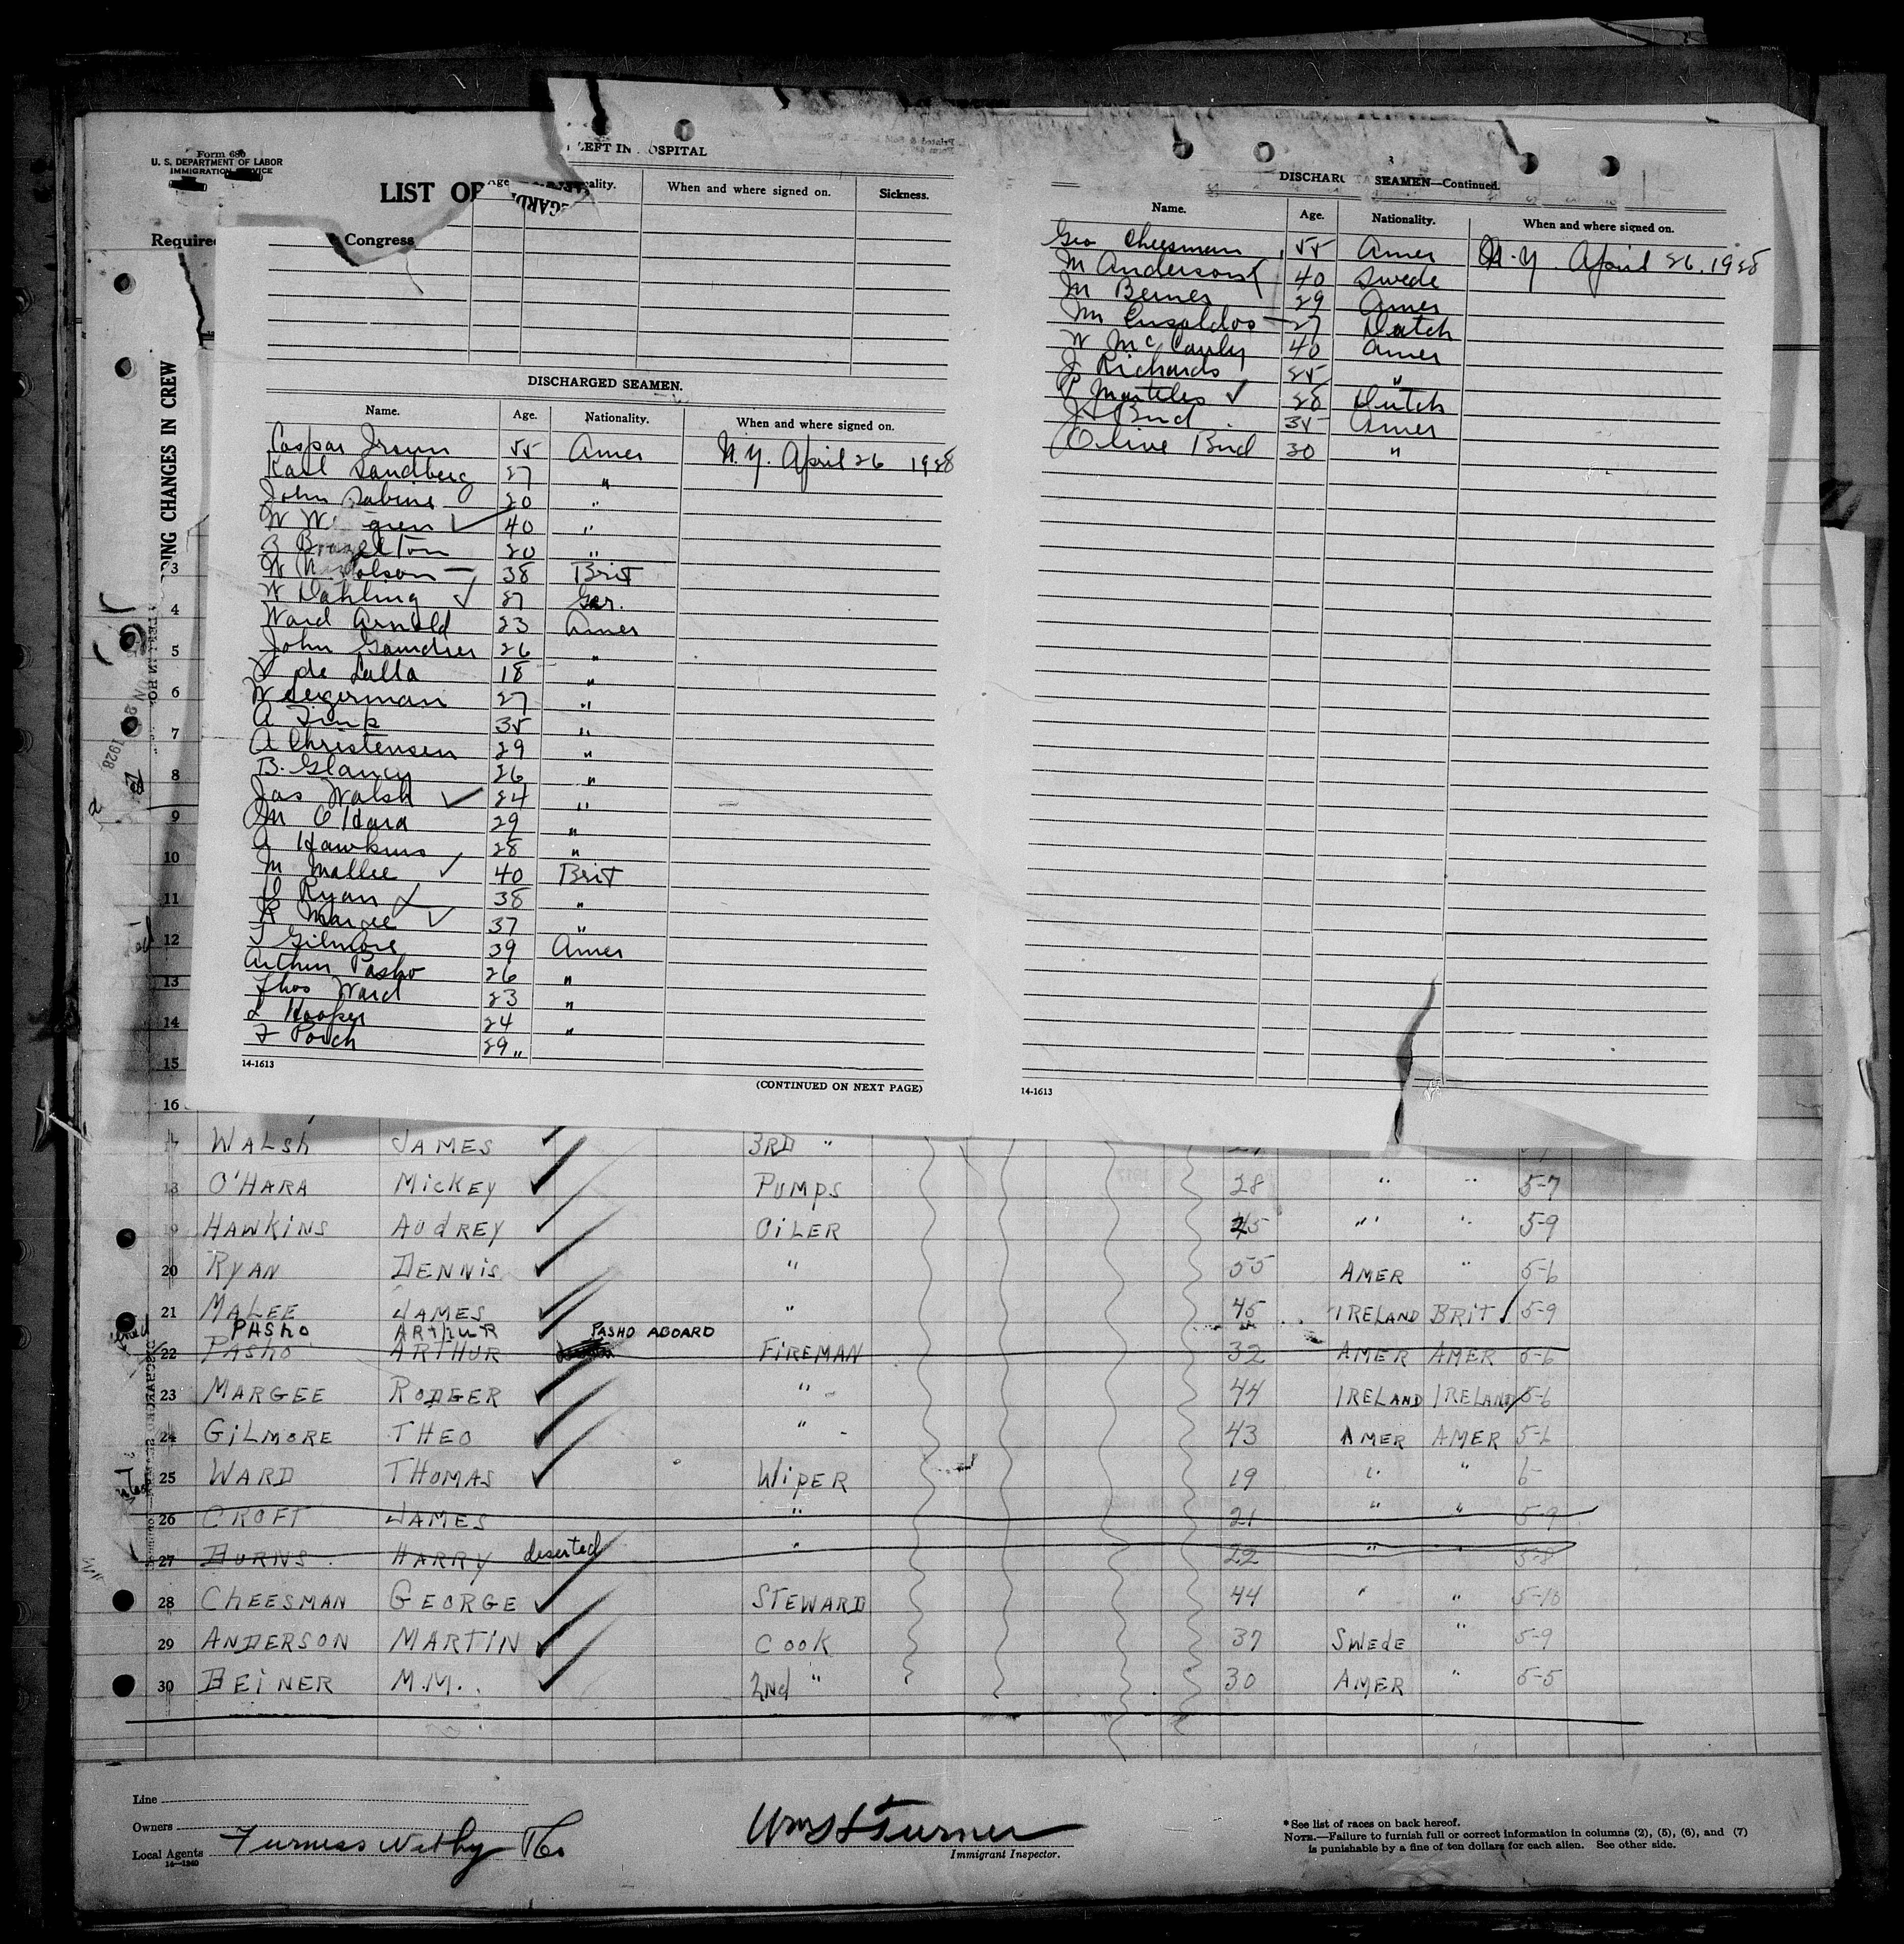 Form 680
U. S. DEPARTMENT OF LABOR
IMMIGRATION SERVICE
LIST OF
Required
Congress
LEFT IN HOSPITAL
Age
ality.
When and where signed on.
Sickness.
DING CHANGES IN CREW
DISCHARGED SEAMEN.
Name. Age. Nationality. When and where signed on.
Caspar Irwin 55 Amer N.Y. April 26 1928
Karl Sandberg 27 "
John Sabine 20 "
W W gren 40 "
Br elton 20 "
W N olson 38 Brit
W Dahling 27 Ger.
Ward Arnold 23 Amer
John Gaudier 26 "
de Lalla 18 "
W Seigerman 27 "
A Timp 35 "
A Christensen 29 "
B. Glancy 26 "
Jas Walsh 24 "
M O'Hara 29 "
A Hawkins 28 "
M Mallee 40 Brit
D Ryan 38 "
R Margee 37 "
T Gilmore 39 Amer
Arthur Pasho 26 "
Thos Ward 23 "
L Hooper 24 "
F Porch 29 "
14-1613
(CONTINUED ON NEXT PAGE)
3
DISCHAR SEAMEN—Continued.
Name. Age. Nationality. When and where signed on.
Geo Cheesman 55 Amer N.Y. April 26. 1928
M Anderson 40 Swede
M Beines 29 Amer
M 27 Dutch
W McCauly 40 Amer
J Richards 25 "
P Marteles 28 Dutch
J H Bird 35 Amer
Olive Bird 30 "
14-1613
3
4
5
6
7
8
9
10
11
12
13
14
15
16
17 WALSH JAMES 3RD "
18 O'HARA MICKEY PUMPS 28 " " 5-7
19 HAWKINS AUDREY OILER 25 " " 5-9
20 RYAN DENNIS " 55 AMER " 5-6
21 MALEE JAMES " 45 IRELAND BRIT 5-9
PASHO ARTHUR PASHO ABOARD
22 PASHO ARTHUR FIREMAN 32 AMER AMER 5-6
23 MARGEE RODGER " 44 IRELAND IRELAND 5-6
24 GILMORE THEO " 43 AMER AMER 5-6
25 WARD THOMAS WIPER 19 " "
26 CROFT JAMES " 21 " " 5-9
27 BURNS HARRY deserted " 22 " " 5-8
28 CHEESMAN GEORGE STEWARD 44 " " 5-10
29 ANDERSON MARTIN COOK 37 SWEDE " 5-9
30 BEINER M.M. 2ND " 30 AMER " 5-5
Line
Owners
Local Agents Furness Withy & Co
14—1240
Wm S Turner
Immigrant Inspector.
*See list of races on back hereof.
NOTE.—Failure to furnish full or correct information in columns (2), (5), (6), and (7)
is punishable by a fine of ten dollars for each alien. See other side.